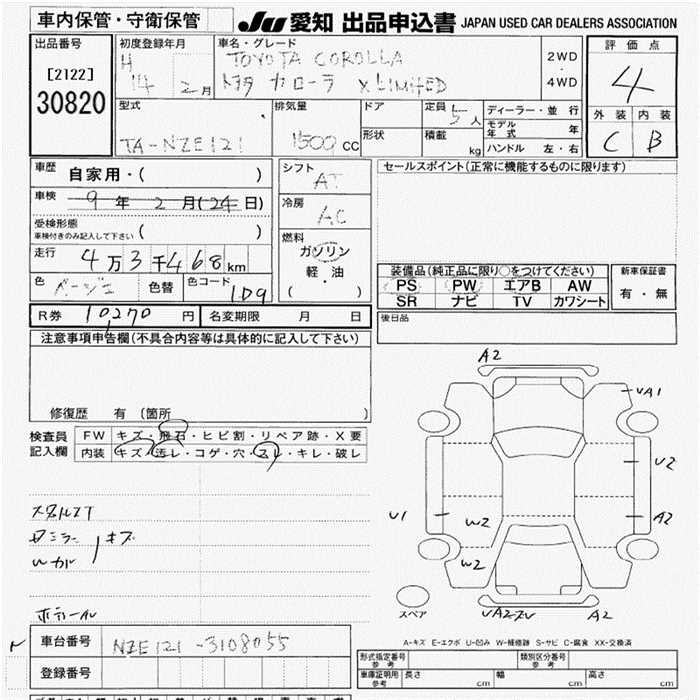 車内保管・守衛保管 JU 愛知 出品申込書 JAPAN USED CAR DEALERS ASSOCIATION
出品番号 [2122] 30820
初度登録年月 H 14 2月
車名・グレード TOYOTA COROLLA
トヨタ カローラ X LIMITED
2WD・4WD
評価点 4
外装 内装
C B
型式 TA-NZE121
排気量 1500cc
ドア
形状
定員 5人
積載 kg
ディーラー・並行
モデル年式 年
ハンドル 左・右
車歴 自家用・( )
車検 9年 2月(24日)
受検形態
車検付きのみ記入して下さい ( )
走行 4万3千468km
色 ベージュ 色替 色コード 1D9
シフト AT
冷房 AC
燃料 ガソリン
軽・油
( )
セールスポイント(正常に機能するものに限ります)
装備品(純正品に限り○をつけてください)
PS PW エアB AW
SR ナビ TV カワシート
新車保証書
有・無
R券 10270円 名変期限 月 日
後日品
注意事項申告欄(不具合内容等は具体的に記入して下さい)
修復歴 有 (箇所 )
検査員記入欄
FW キズ・飛石・ヒビ割・リペア跡・X要
内装 キズ・汚レ・コゲ・穴・スレ・キレ・破レ
キズ
A2
UA1
U2
A2
U1
W2
W2
A2
スペア
A-キズ E-エクボ U-凹み W-補修跡 S-サビ C-腐食 XX-交換済
車台番号 NZE121-3108055
登録番号
形式指定番号 参考
類別区分番号 参考
車庫証明用 参考 長さ cm 幅 cm 高さ cm